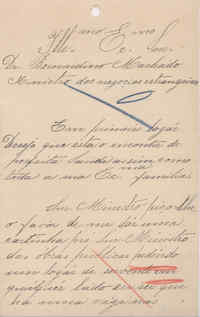 Illmo Exmo Snr.
Dr Bernardino Machado
Ministro dos negocios estrangeiros
Em primeiro logar
Desejo que esta o encontre de
perfeita saude assim como
toda a sua Exma familia
Snr Ministro peço lhe
o favor de me dar uma
cartinha pro Snr Ministro
das obras publicas pedindo
um logar de servente em
qualquer lado sei que
ha uma vaga